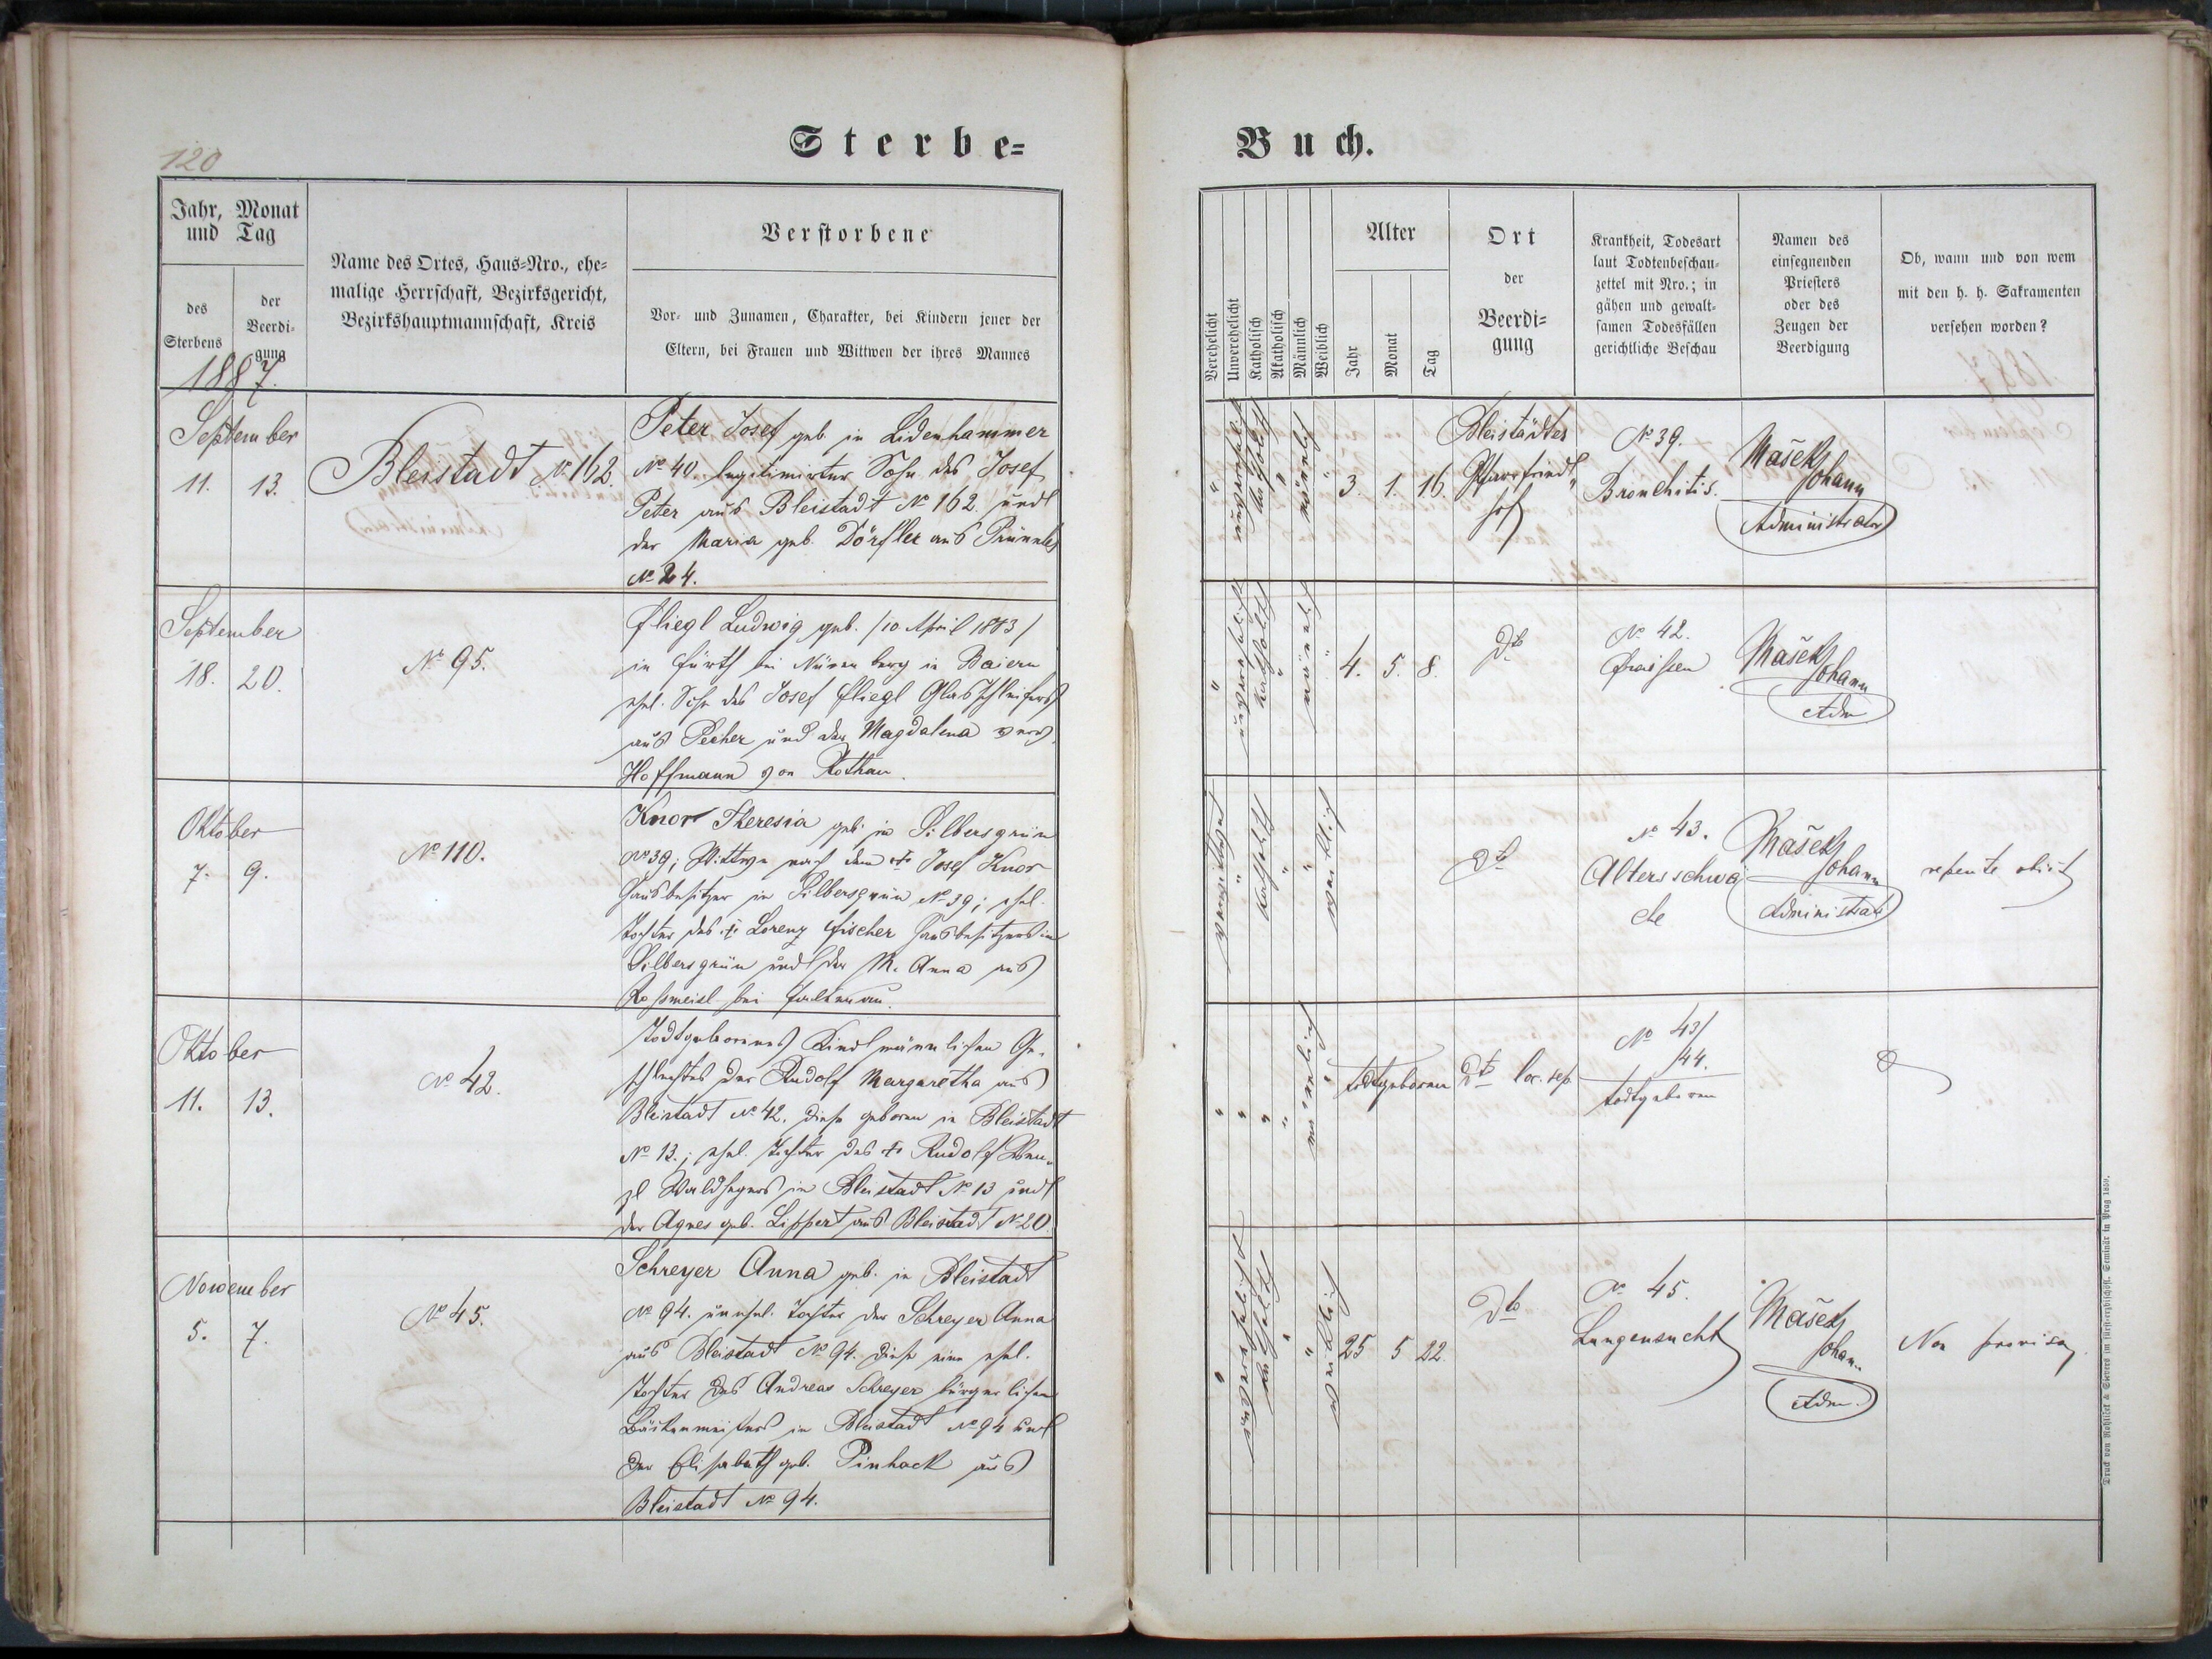 120
Sterbe=
Jahr, Monat
und Tag
des
Sterbens
der
Beerdi-
gung
1887.
Name des Ortes, Haus=Nro., ehe=
malige Herrschaft, Bezirksgericht,
Bezirkshauptmannschaft, Kreis
Verstorbene
Vor= und Zunamen, Charakter, bei Kindern jener der
Eltern, bei Frauen und Wittwen der ihres Mannes
September
11. 13.
Bleistadt № 162.
Peter Josef geb. in Lidenhammer
№ 40. legitimirter Sohn des Josef
Peter aus Bleistadt № 162. und
der Maria geb. Dörfler aus Prünnles
№ 24.
September
18. 20.
№ 95.
Fliegl Ludwig geb. /10 April 1883/
in Fürth bei Nürenberg in Baiern
ehel. Sohn des Josef Fliegl Glasschleifers
aus Pecher und der Magdalena
Hoffmann von Rothau.
Oktober
7. 9.
№ 110.
Knor Theresia geb. in Silbersgrün
№ 39; Wittwe nach dem † Josef Knor
Hausbesitzer in Silbersgrün № 39; ehel.
Tochter des † Lorenz Fischer Hausbesitzers in
Silbersgrün und der M. Anna aus
Roßmeisl bei Falkenau.
Oktober
11. 13.
№ 42.
Todtgeborenes Kind männlichen Ge-
schlechtes der Rudolf Margaretha aus
Bleistadt № 42. diese geboren in Bleistadt
№ 13.; ehel. Tochter des † Rudolf Wen-
zl Waldhegers in Bleistadt № 13 und
der Agnes geb. Lippert aus Bleistadt № 20.
November
5. 7.
№ 45.
Schreyer Anna geb. in Bleistadt
№ 94. unehel. Tochter der Schreyer Anna
aus Bleistadt № 94. diese eine ehel.
Tochter des Andreas Schreyer bürgerlichen
Bäckermeisters in Bleistadt № 94 und
der Elisabeth geb. Pinhack aus
Bleistadt № 94.
Buch.
Verehelicht
Unverehelicht
Katholisch
Akatholisch
Männlich
Weiblich
Alter
Jahr
Monat
Tag
Ort
der
Beerdi=
gung
Krankheit, Todesart
laut Todtenbeschau=
zettel mit Nro.; in
gähen und gewalt=
samen Todesfällen
gerichtliche Beschau
Namen des
einsegnenden
Priesters
oder des
Zeugen der
Beerdigung
Ob, wann und von wem
mit den h. h. Sakramenten
versehen worden?
" unverehelicht katholisch " männlich "
3. 1. 16.
Bleistädter
Pfarrfried-
hof
№ 39.
Bronchitis.
Mašek
Johann
Administrator
" unverehelicht katholisch " männlich "
4. 5. 8.
Dto
№ 42.
Fraisen
Mašek
Johann
Adm
verwittwet " katholisch " " weiblich
Dto
№ 43.
Altersschwä-
che
Mašek
Johann
Administrator
repente obiit
" " " " männlich "
todtgeboren
Dto loc. sep.
№ 43/
44.
todtgeboren
" unverehelicht katholisch " " weiblich
25 5 22.
Dto
№ 45.
Lungensucht
Mašek
Johan.
Adm.
Non provisa.
Druck von Rohliček & Sievers im fürst-erzbischöfl. Seminär in Prag 1859.